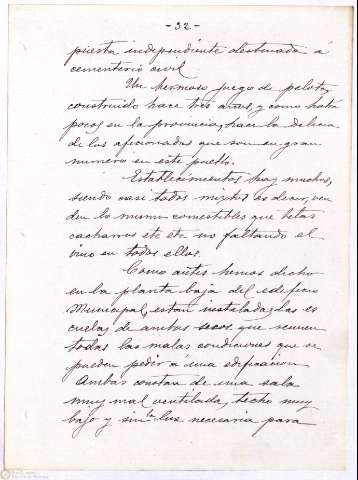 - 32 -
puerta independiente destinada á
cementerio civil.
Un hermoso juego de pelota,
construido hace tres años, y como habrá
pocos en la provincia, hace la delicia
de los aficionados que son en gran
numero en este pueblo.
Establecimientos hay muchos,
siendo casi todos mixtos es decir, ven
den lo mismo comestibles que telas
cacharros etc etc no faltando el
vino en todos ellos.
Como antes hemos dicho
en la planta baja del edificio
Municipal, estan instaladas las es
cuelas de ambos sexos que reunen
todas las malas condiciones que se
pueden pedir á una edificacion
Ambas constan de una sala
muy mal ventilada, techo muy
bajo y sin la luz necesaria para